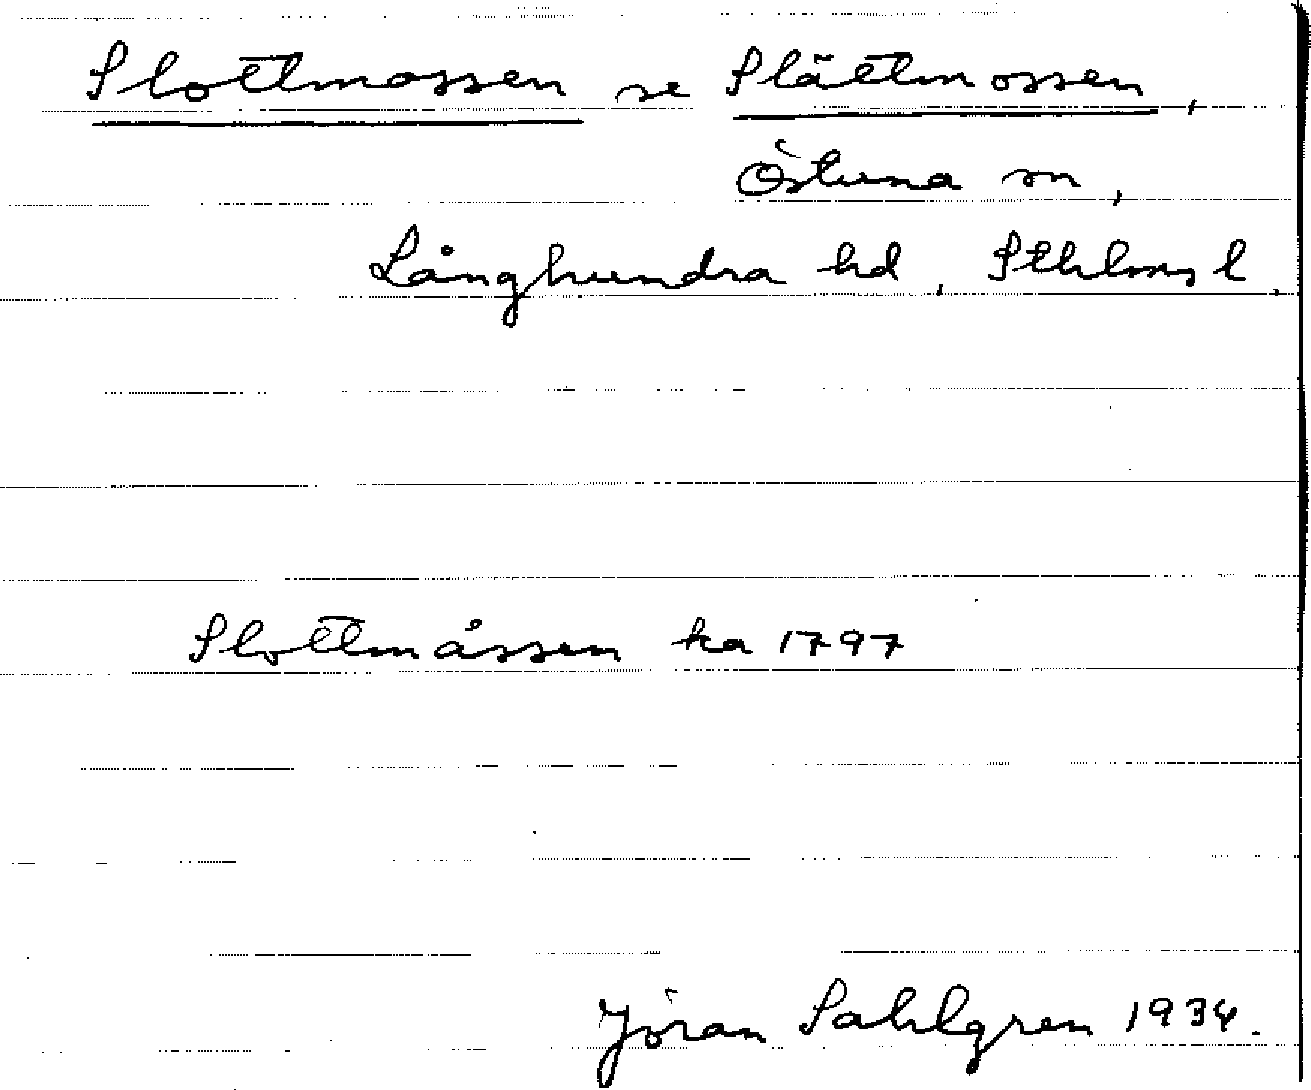 Slottmossen se Slättmossen,
Östuna sn,
Långhundra hd, Sthlms l.
Slottmåssen ka 1797
Jöran Sahlgren 1934.